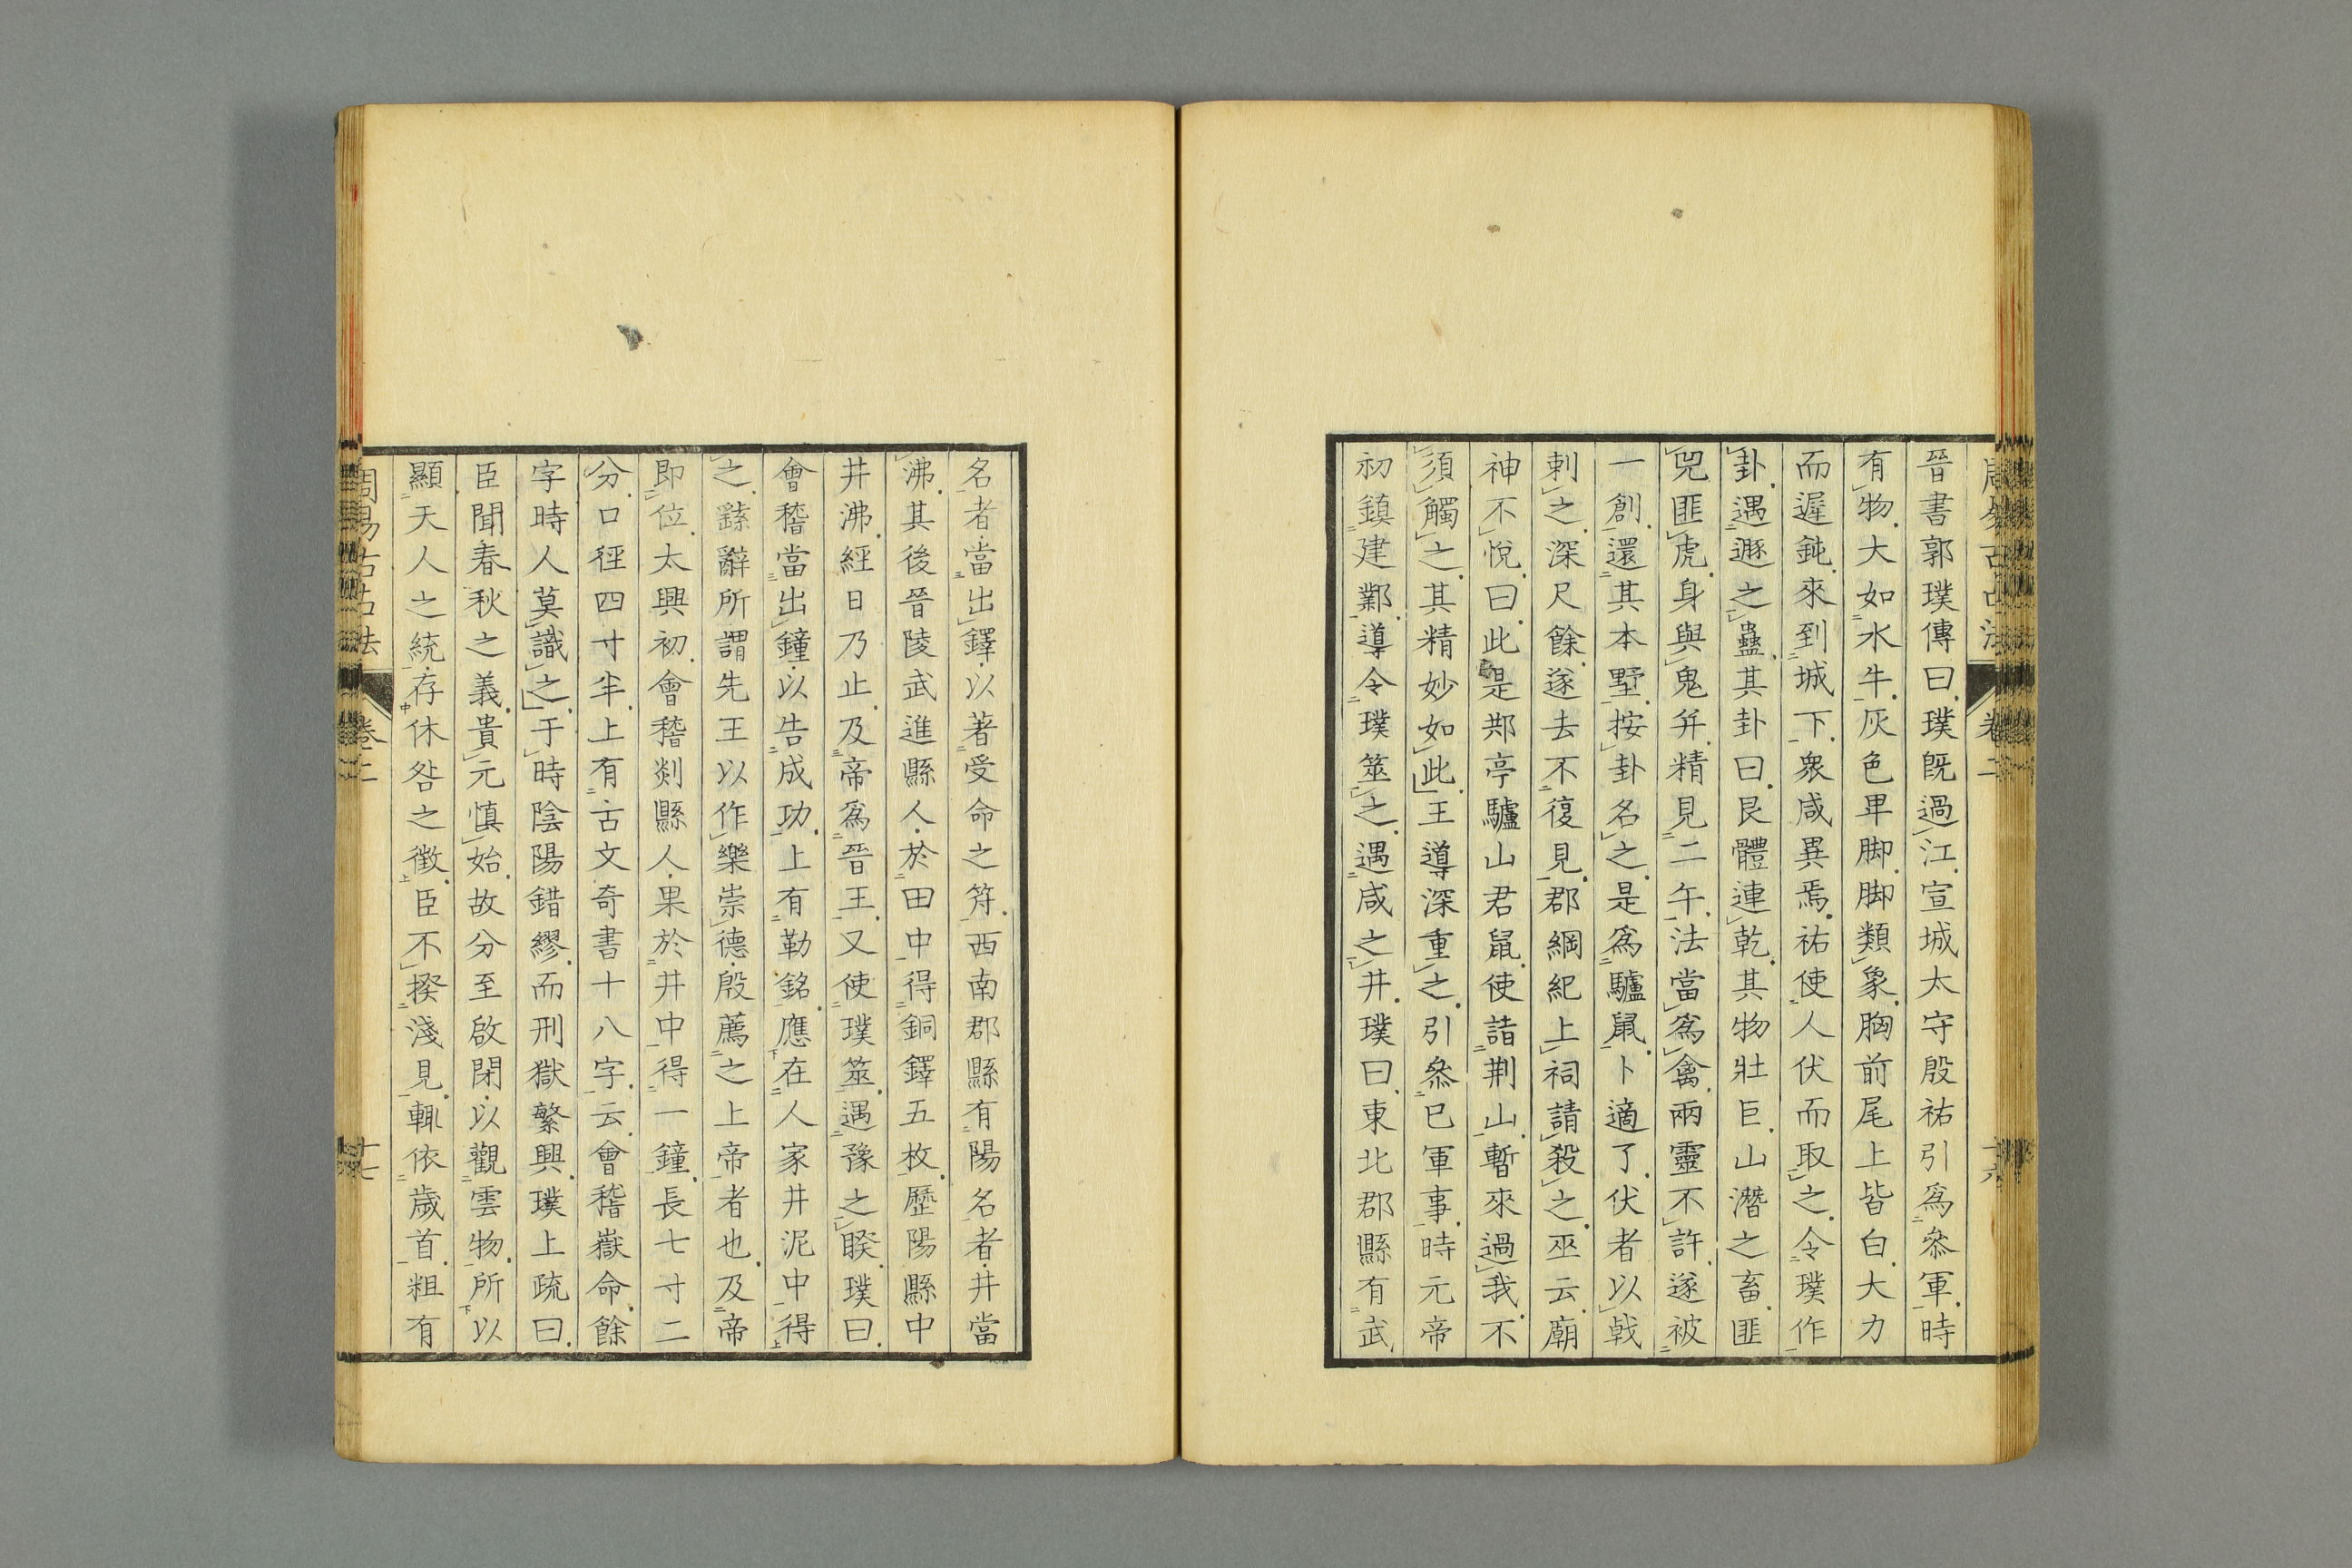 晉書郭璞傳曰璞既過江宣城太守殷祐引爲叅軍時
有物大如水牛灰色卑脚脚類象胸前尾上皆白大力
而遲鈍來到城下衆咸異焉祐使人伏而取之令璞作
卦遇遯之蠱其卦曰艮體連乾其物壯巨山潛之畜匪
兕匪虎身與鬼并精見二午法當爲禽兩靈不許遂被
一創還其本墅按卦名之是爲驢鼠卜適了伏者以戟
刺之深尺餘遂去不復見郡綱紀上祠請殺之巫云廟
神不悅曰此是䢼亭驢山君鼠使詣荆山暫來過我不
須觸之其精妙如此王導深重之引叅已軍事時元帝
初鎮建鄴導令璞筮之遇咸之井璞曰東北郡縣有武
名者當出鐸以著受命之符西南郡縣有陽名者井當
沸其後晉陵武進縣人於田中得銅鐸五枚歷陽縣中
井沸經日乃止及帝爲晉王又使璞筮遇豫之睽璞曰
會稽當出鐘以告成功上有勒銘應在人家井泥中得
之繇辭所謂先王以作樂崇德殷薦之上帝者也及帝
即位太興初會稽剡縣人果於井中得一鐘長七寸二
分口徑四寸半上有古文奇書十八字云會稽嶽命餘
字時人莫識之于時陰陽錯繆而刑獄繁興璞上疏曰
臣聞春秋之義貴元慎始故分至啟閉以觀雲物所以
顯天人之統存休咎之徵臣不揆淺見輒依歲首粗有
周易古占法 卷二 十七